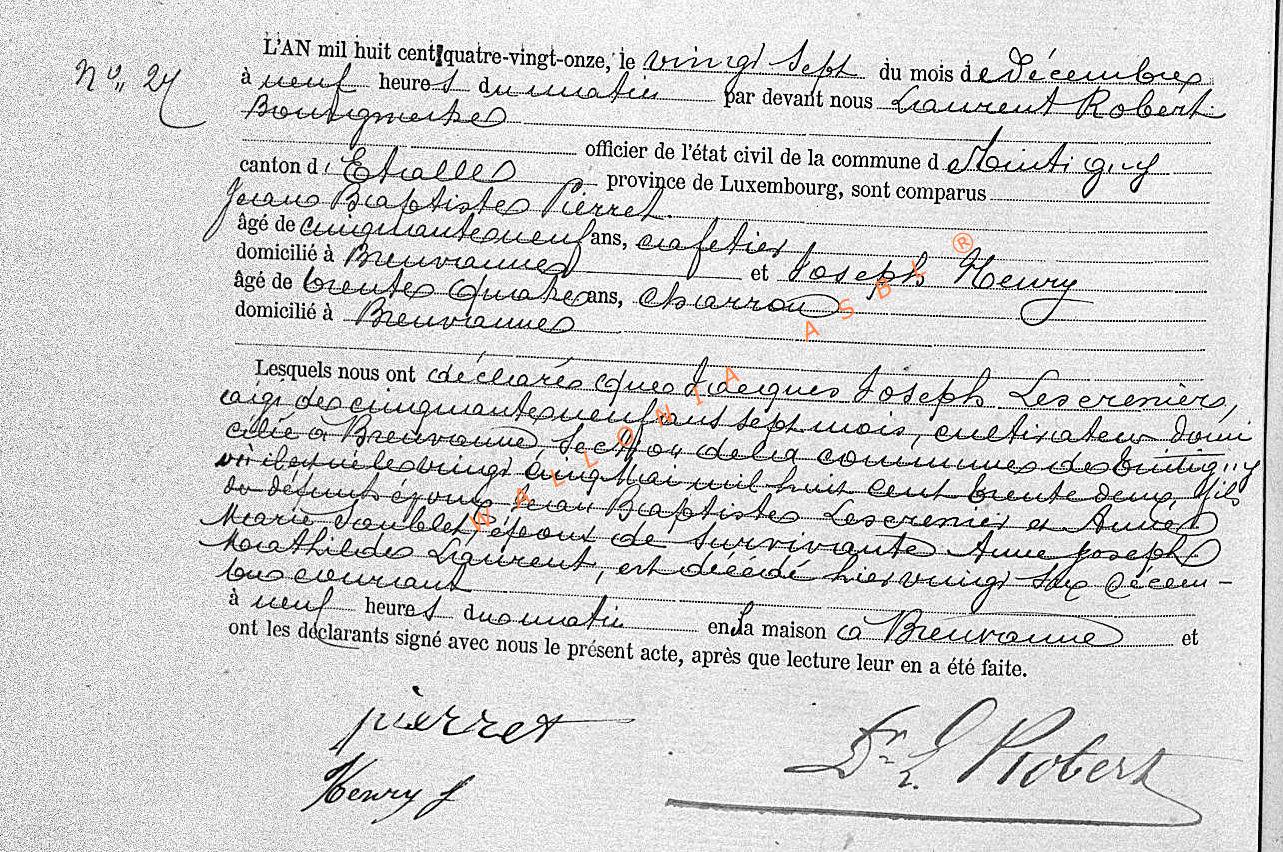 N° 27
L'AN mil huit cent quatre-vingt-onze, le vingt sept du mois de Décembre
à neuf heures du matin par devant nous Laurent Robert
Bourgmestre
officier de l'état civil de la commune de Tintigny
canton d'Etalle province de Luxembourg, sont comparus
Jean Baptiste Pierret
âgé de cinquante neuf ans, cafetier
domicilié à Breuvanne et Joseph Henry
âgé de trente quatre ans, charron
domicilié à Breuvanne
Lesquels nous ont déclaré que Jacques Joseph Lescrenier,
âgé de cinquante neuf ans sept mois, cultivateur domi
cilié à Breuvanne, section de la commune de Tintigny
où il est né le vingt cinq Mai mil huit cent trente deux, fils
de défunts époux Jean Baptiste Lescrenier et Anne
Marie Saublet, époux de survivante Anne Joseph
Mathilde Laurent, est décédé hier vingt six Décem-
bre courant
à neuf heures du matin en la maison à Breuvanne et
ont les déclarants signé avec nous le présent acte, après que lecture leur en a été faite.
pierret
Henry J
Dr L Robert
WALLONIA ASBL ®